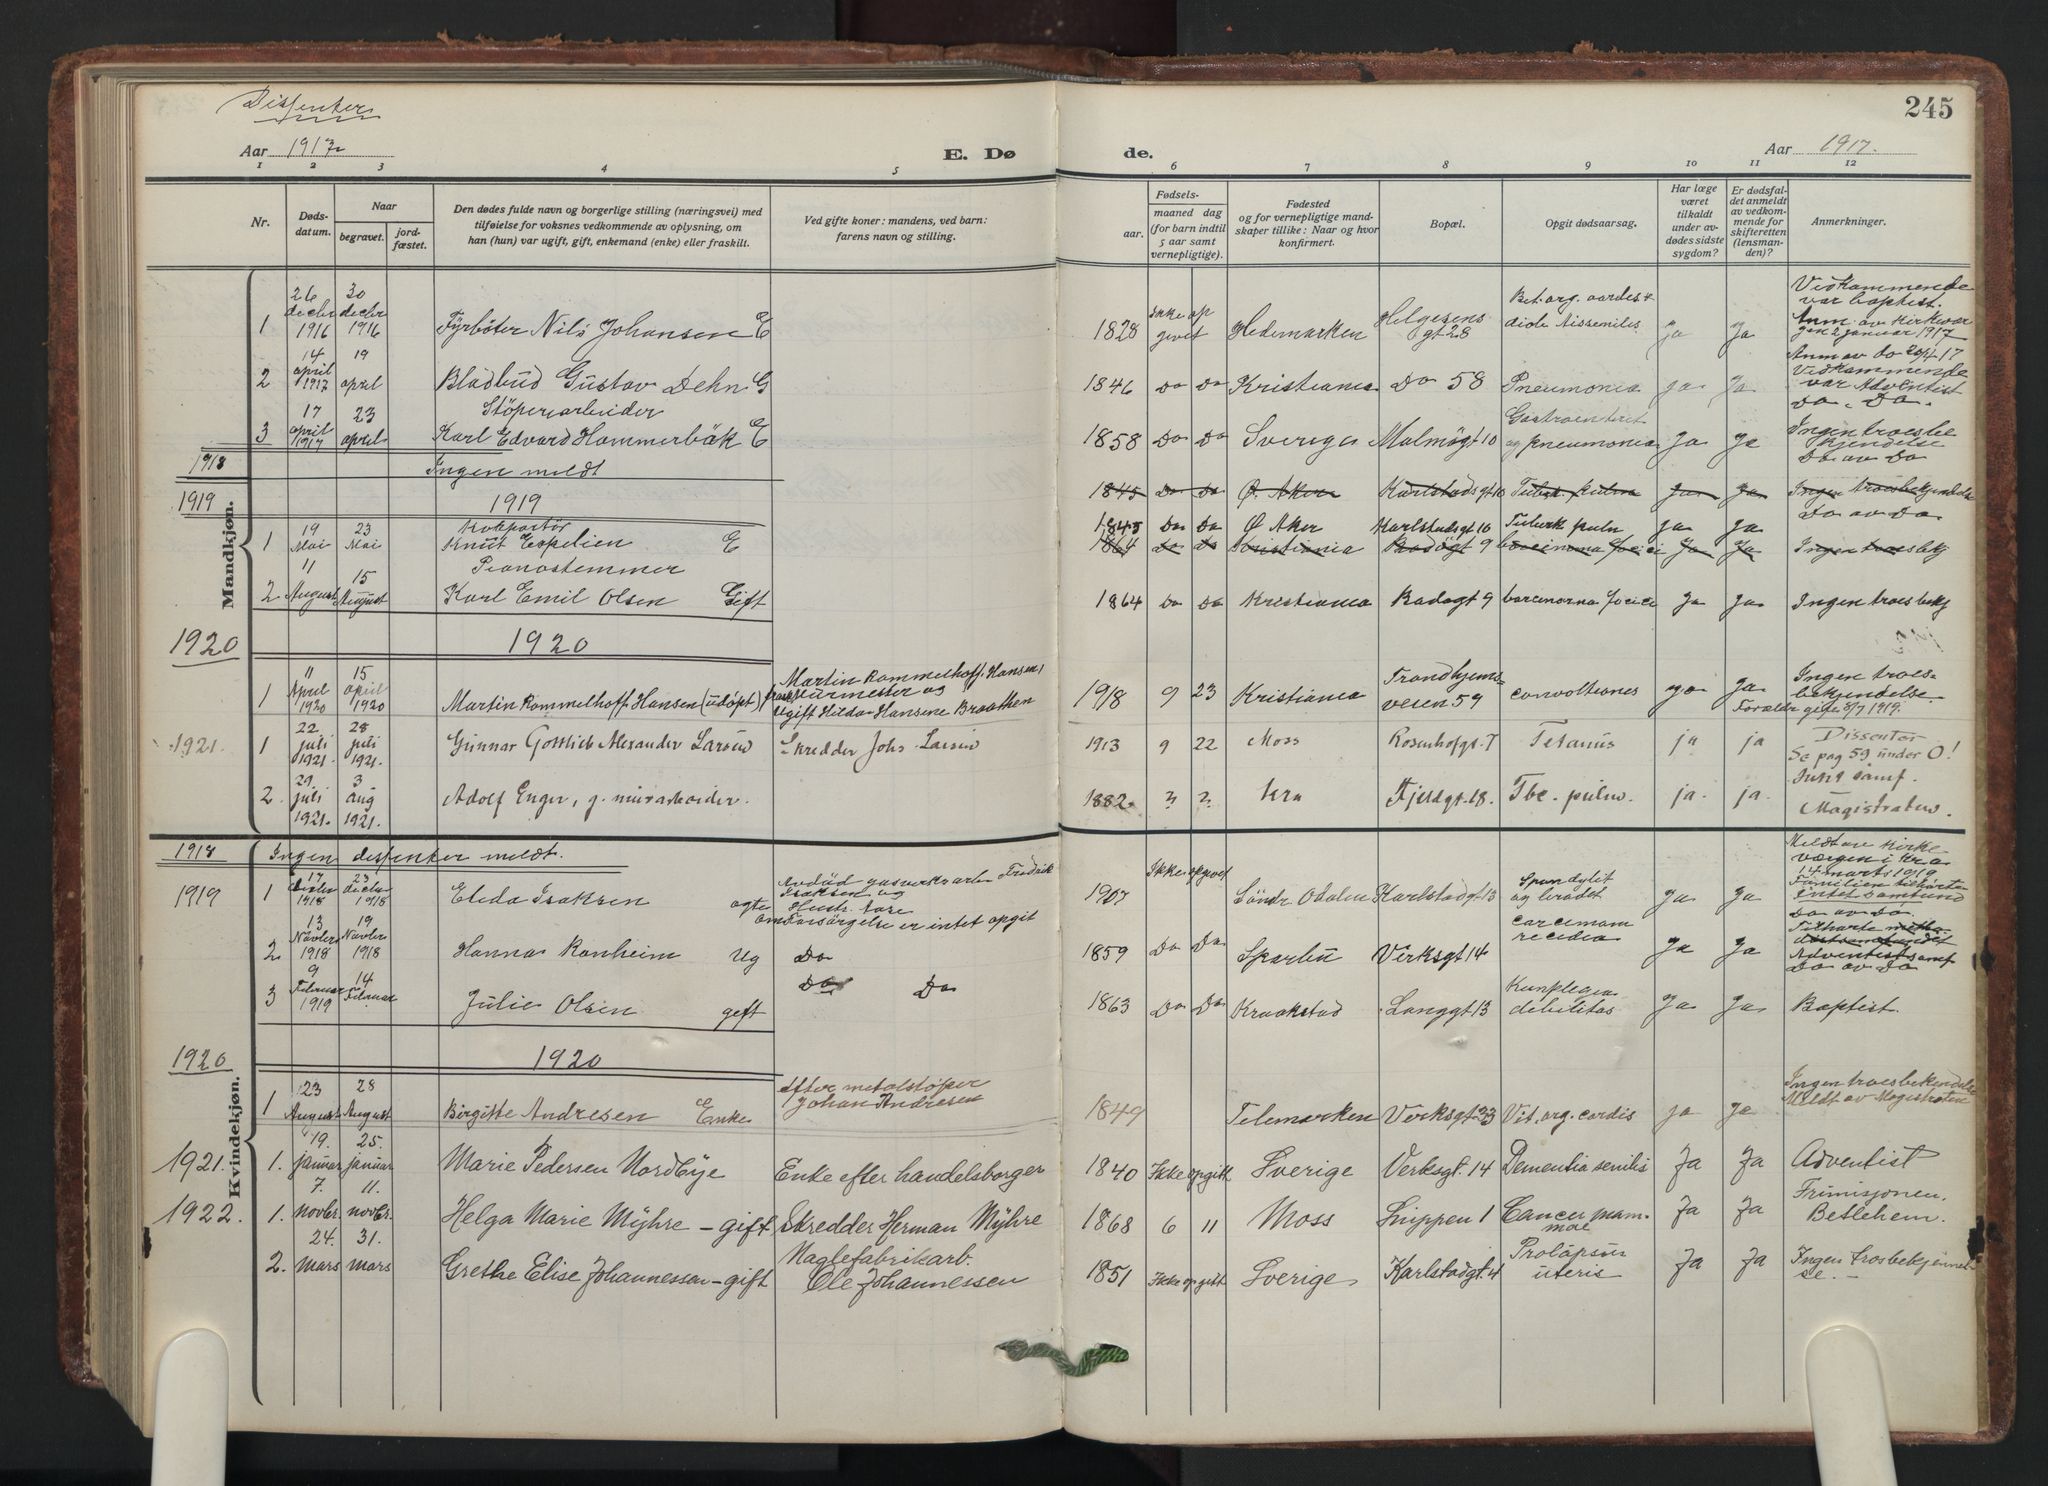 Dissenter
245
Aar 1917
E. Dø
de.
Aar 1917.
1 2 3 4 5 6 7 8 9 10 11 12
Nr.
Døds-
datum.
Naar
begravet.
jord-
fæstet.
Den dødes fulde navn og borgerlige stilling (næringsvei) med
tilføielse for voksnes vedkommende av oplysning, om
han (hun) var ugift, gift, enkemand (enke) eller fraskilt.
Ved gifte koner: mandens, ved barn:
farens navn og stilling.
Fødsels-
aar.
maaned dag
(for barn indtil
5 aar samt
vernepligtige).
Fødested
og for vernepligtige mand-
skaper tillike: Naar og hvor
konfirmert.
Bopæl.
Opgit dødsaarsag.
Har læge
været
tilkaldt
under av-
dødes sidste
sygdom?
Er dødsfal-
det anmeldt
av vedkom-
mende for
skifteretten
(lensman-
den)?
Anmerkninger.
Mandkjøn.
1 26 decbr 1916 30 decbr 1916 Fyrböter Nils Johansen E 1828 Ikke op givet Hedemarken Helgesens gt 28 Ja Ja
Vedkommende
var baptist.
Anm. av kirkevær
gen 2 januar 1917
2 14 april 1917 19 april Bladbud Gustav Dehn G 1846 Do Do Kristiania Do 58 Pneumonia ja Ja
Vedkommende
var Adventist
Do. Do.
3 17 april 1917 23 april Stöperiarbeider
Karl Edvard Hammerbäk E 1858 Do Do Sverige Malmögt 10 og pneumonia Ja Ja
Ingen troesbe
kjendelse
Do av Do
1918 Ingen meldt
1919 1919
1845 Do Do Ø. Aker Karlstadsgt 10 Tuberk. pulm Ja Ja Ingen troesbekjendelse
Do av Do
1 19 Mai 23 Mai Kolportör
Knut Espelien E 1845 Do Do Ø Aker Karlstadsgt 10 Tuberk pulm Ja Ja
1864 Do Do Kristiania Badogt 9 Ja Ja Ingen troesbekj
2 11 August 15 August Pianostemmer
Karl Emil Olsen Gift 1864 Do Do Kristiania Badogt 9 Ja Ja Ingen troesbekj
1920 1920
1 11 April 1920 15 april 1920 Martin Rommelhoff Hansen (udöpt)
Martin Rommelhoff Hansen
Ugift Hilda Hansene Braathen
1918 9 23 Kristiania Trondhjems-
veien 59 convoltiones ja Ja
Ingen troes-
bekjendelse.
1921. 1 22 juli 1921 28 juli 1921. Gunnar Gottlieb Alexander Larsen Skredder Johs. Larsen 1913 9 22 Moss Rosenhofgt. 7 Tetanus ja ja Dissenter
Se pag 59 under O!
2. 29. juli 1921. 3 aug 1921. Adolf Enger, g. murarbeider. 1882. ? ? Kra Fjeldgt. 18. Tbc. pulm. ja. ja.
Intet samf.
Magistraten.
Kvindekjøn.
1918 Ingen dissenter meldt.
1919 1 17 decbr 1918 23 decbr 1918 Eleda Isaksen
Avdöd gasverksarb Fredrik
Isaksen og
Omforsörgelse er intet opgit
1907 Ikke opgivet Söndr Odalen Karlstadgt 13 Spondylit Ja Ja
Meldt av kirke
værgen i Kra
14 marts 1919
Familien tilhörte
intet samfund
Do av Do.
2 13 Novbr 1918 19 Novbr 1918 Hanna Ranheim Ug Do 1859 Do Do Sparbu Verksgt 14 Ja Ja
Tilhörte metho-
Adventistsamf
Do av Do
3 9 Februar 1919 14 Februar Julie Olsen gift Do Do 1863 Do Do Kraakstad Langgt 13 debilitas Ja Ja Baptist.
1920 1920
1 23 August 28 August Birgitte Andresen Enke efter metalstöper
Johan Andresen 1849 Telemarken Verksgt 33 Vit. org. cordis ja ja
Ingen troesbekendelse
Meldt av Magistraten
1921. 1. 19. januar 25. januar Marie Pedersen Nordbye Enke efter handelsborger 1840 Ikke opgitt Sverige Verksgt. 14 Dementia senilis Ja Ja Adventist
1922. 1. 7. novbr. 11. novbr. Helga Marie Myhre - gift Skredder Herman Myhre 1868 6 11 Moss Snippen 1 Cancer mam-
mae Ja Ja
Frimisjonen.
Betlehem.
2. 24. mars 31. mars Grethe Elise Johannessen - gift Naglefabrikarb.
Ole Johannessen 1851 Ikke opgitt Sverige Karlstadgt. 4 Prolapsus
uteris Ja Ja
Ingen trosbekjennel-
se. -